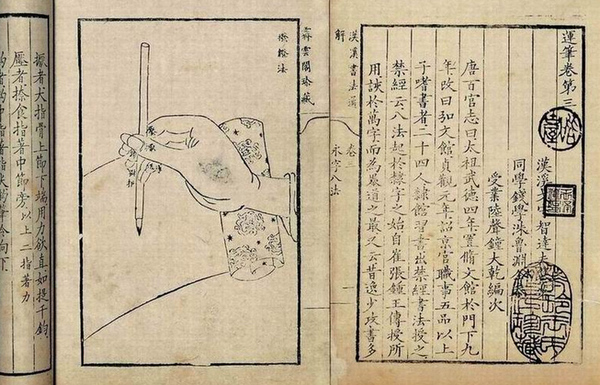 運筆卷第三
漢溪 智達夫
同學錢學洙魯淵
受業陸聲鐘大乾編次
唐百官志曰太祖武德四年置脩文館於門下九
年改曰弘文館貞觀元年詔京官職事五品以上
子嗜書者二十四人隸館習書出禁經書法授之
禁經云八法起於隸字之始自崔張鍾王傳授所
用該於萬字而為墨道之最又云昔逸少攻書多
漢溪書法通解
卷三
永字八法
雲閣珍藏
撥鐙法
者大指骨上節下端用力欲直如提千鈞
壓者捺食指著中節旁以上二指著力